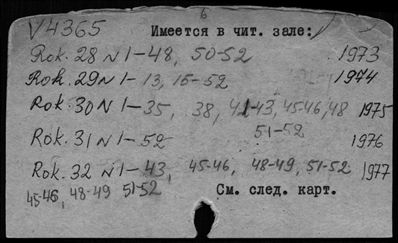 6
V4365 Имеется в чит. зале:
Rok. 28 N 1-48, 50-52 1973
Rok. 29 N 1-13, 15-52 1974
Rok. 30 N 1-35, 38, 41-43, 45-46, 48 1975
51-52
Rok. 31 N 1-52 1976
Rok. 32 N 1-43, 45-46, 48-49, 51-52 1977
45-46, 48-49 51-52 См. след. карт.